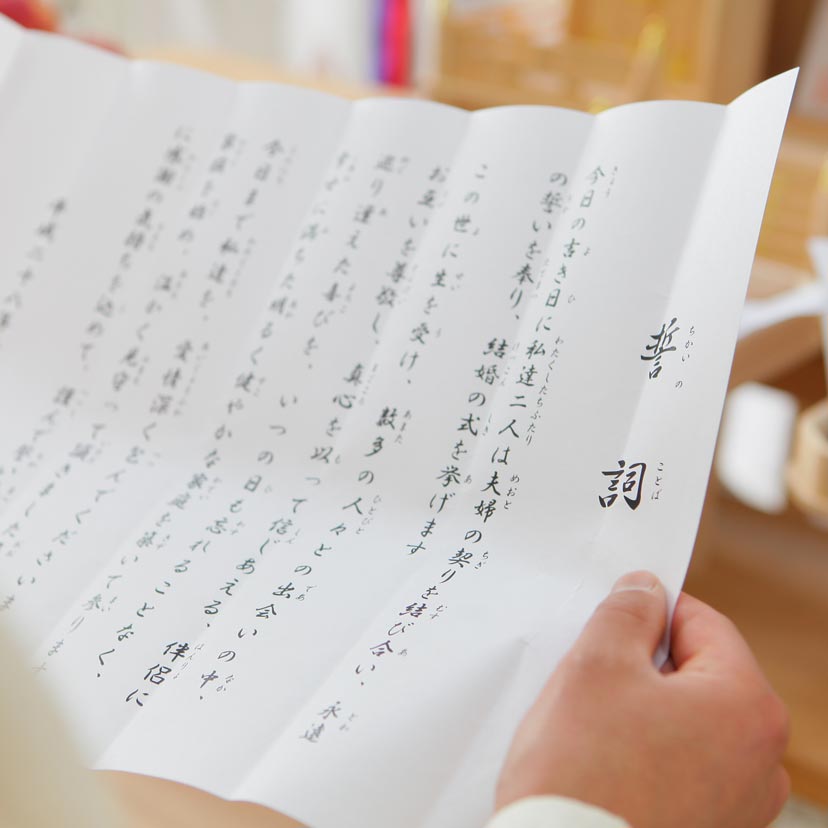 誓詞
今日の吉き日に私達二人は夫婦の契りを結び合い、永遠
の誓いを奉り、結婚の式を挙げます
この世に生を受け、数多の人々との出会いの中、
お互いを尊敬し、真心を以って信じあえる、伴侶に
巡り逢えた喜びを、いつの日も忘れることなく、
すがに満ちた明るく健やかな家庭を築いて参ります
今日まで私達を、愛情深く育んでくださいま
家族を始め、温かく見守って頂きました
に感謝の気持ちを込めて、謹んで誓い
平成二十八年